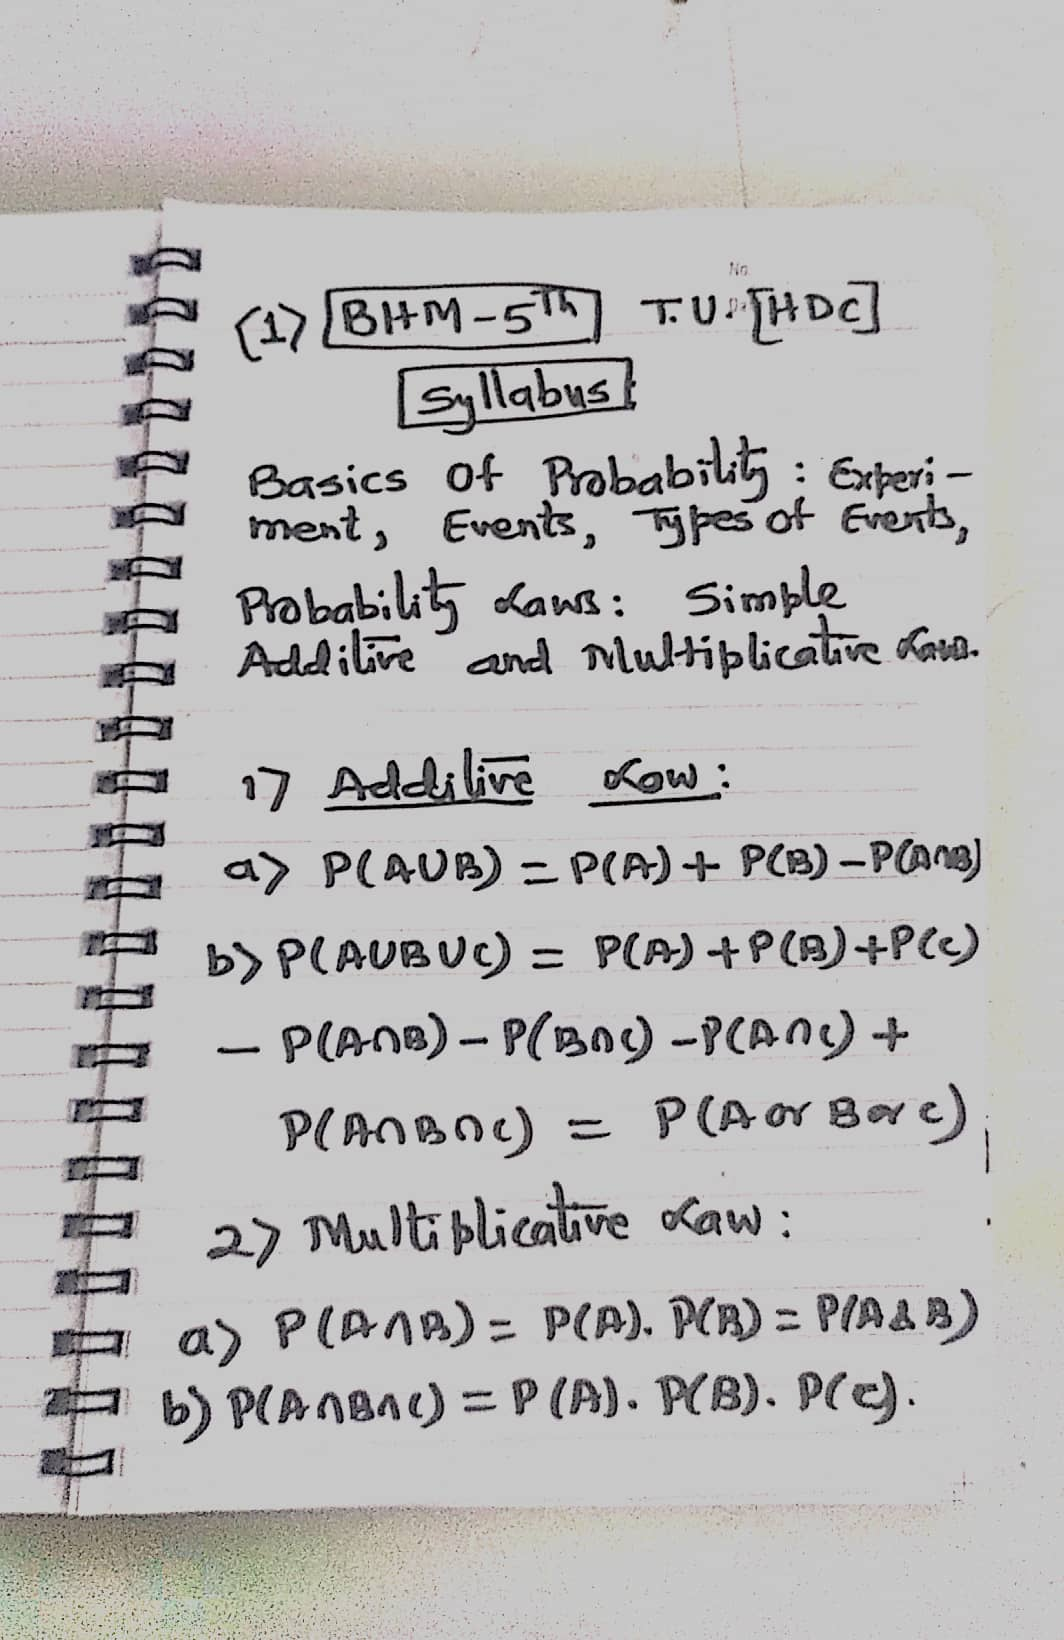 No.
(1) BHM-5Th T.U. [HDC]
Syllabus:
Basics Of Probability : Experi-
ment, Events, Types of Events,
Probability Laws: Simple
Additive and Multiplicative Laws.
1) Additive Law:
a) P(A∪B) = P(A) + P(B) – P(A∩B)
b) P(A∪B∪C) = P(A) + P(B) + P(C)
– P(A∩B) – P(B∩C) – P(A∩C) +
P(A∩B∩C) = P(A or B or C)
2) Multiplicative Law:
a) P(A∩B) = P(A). P(B) = P(A & B)
b) P(A∩B∩C) = P(A). P(B). P(C).